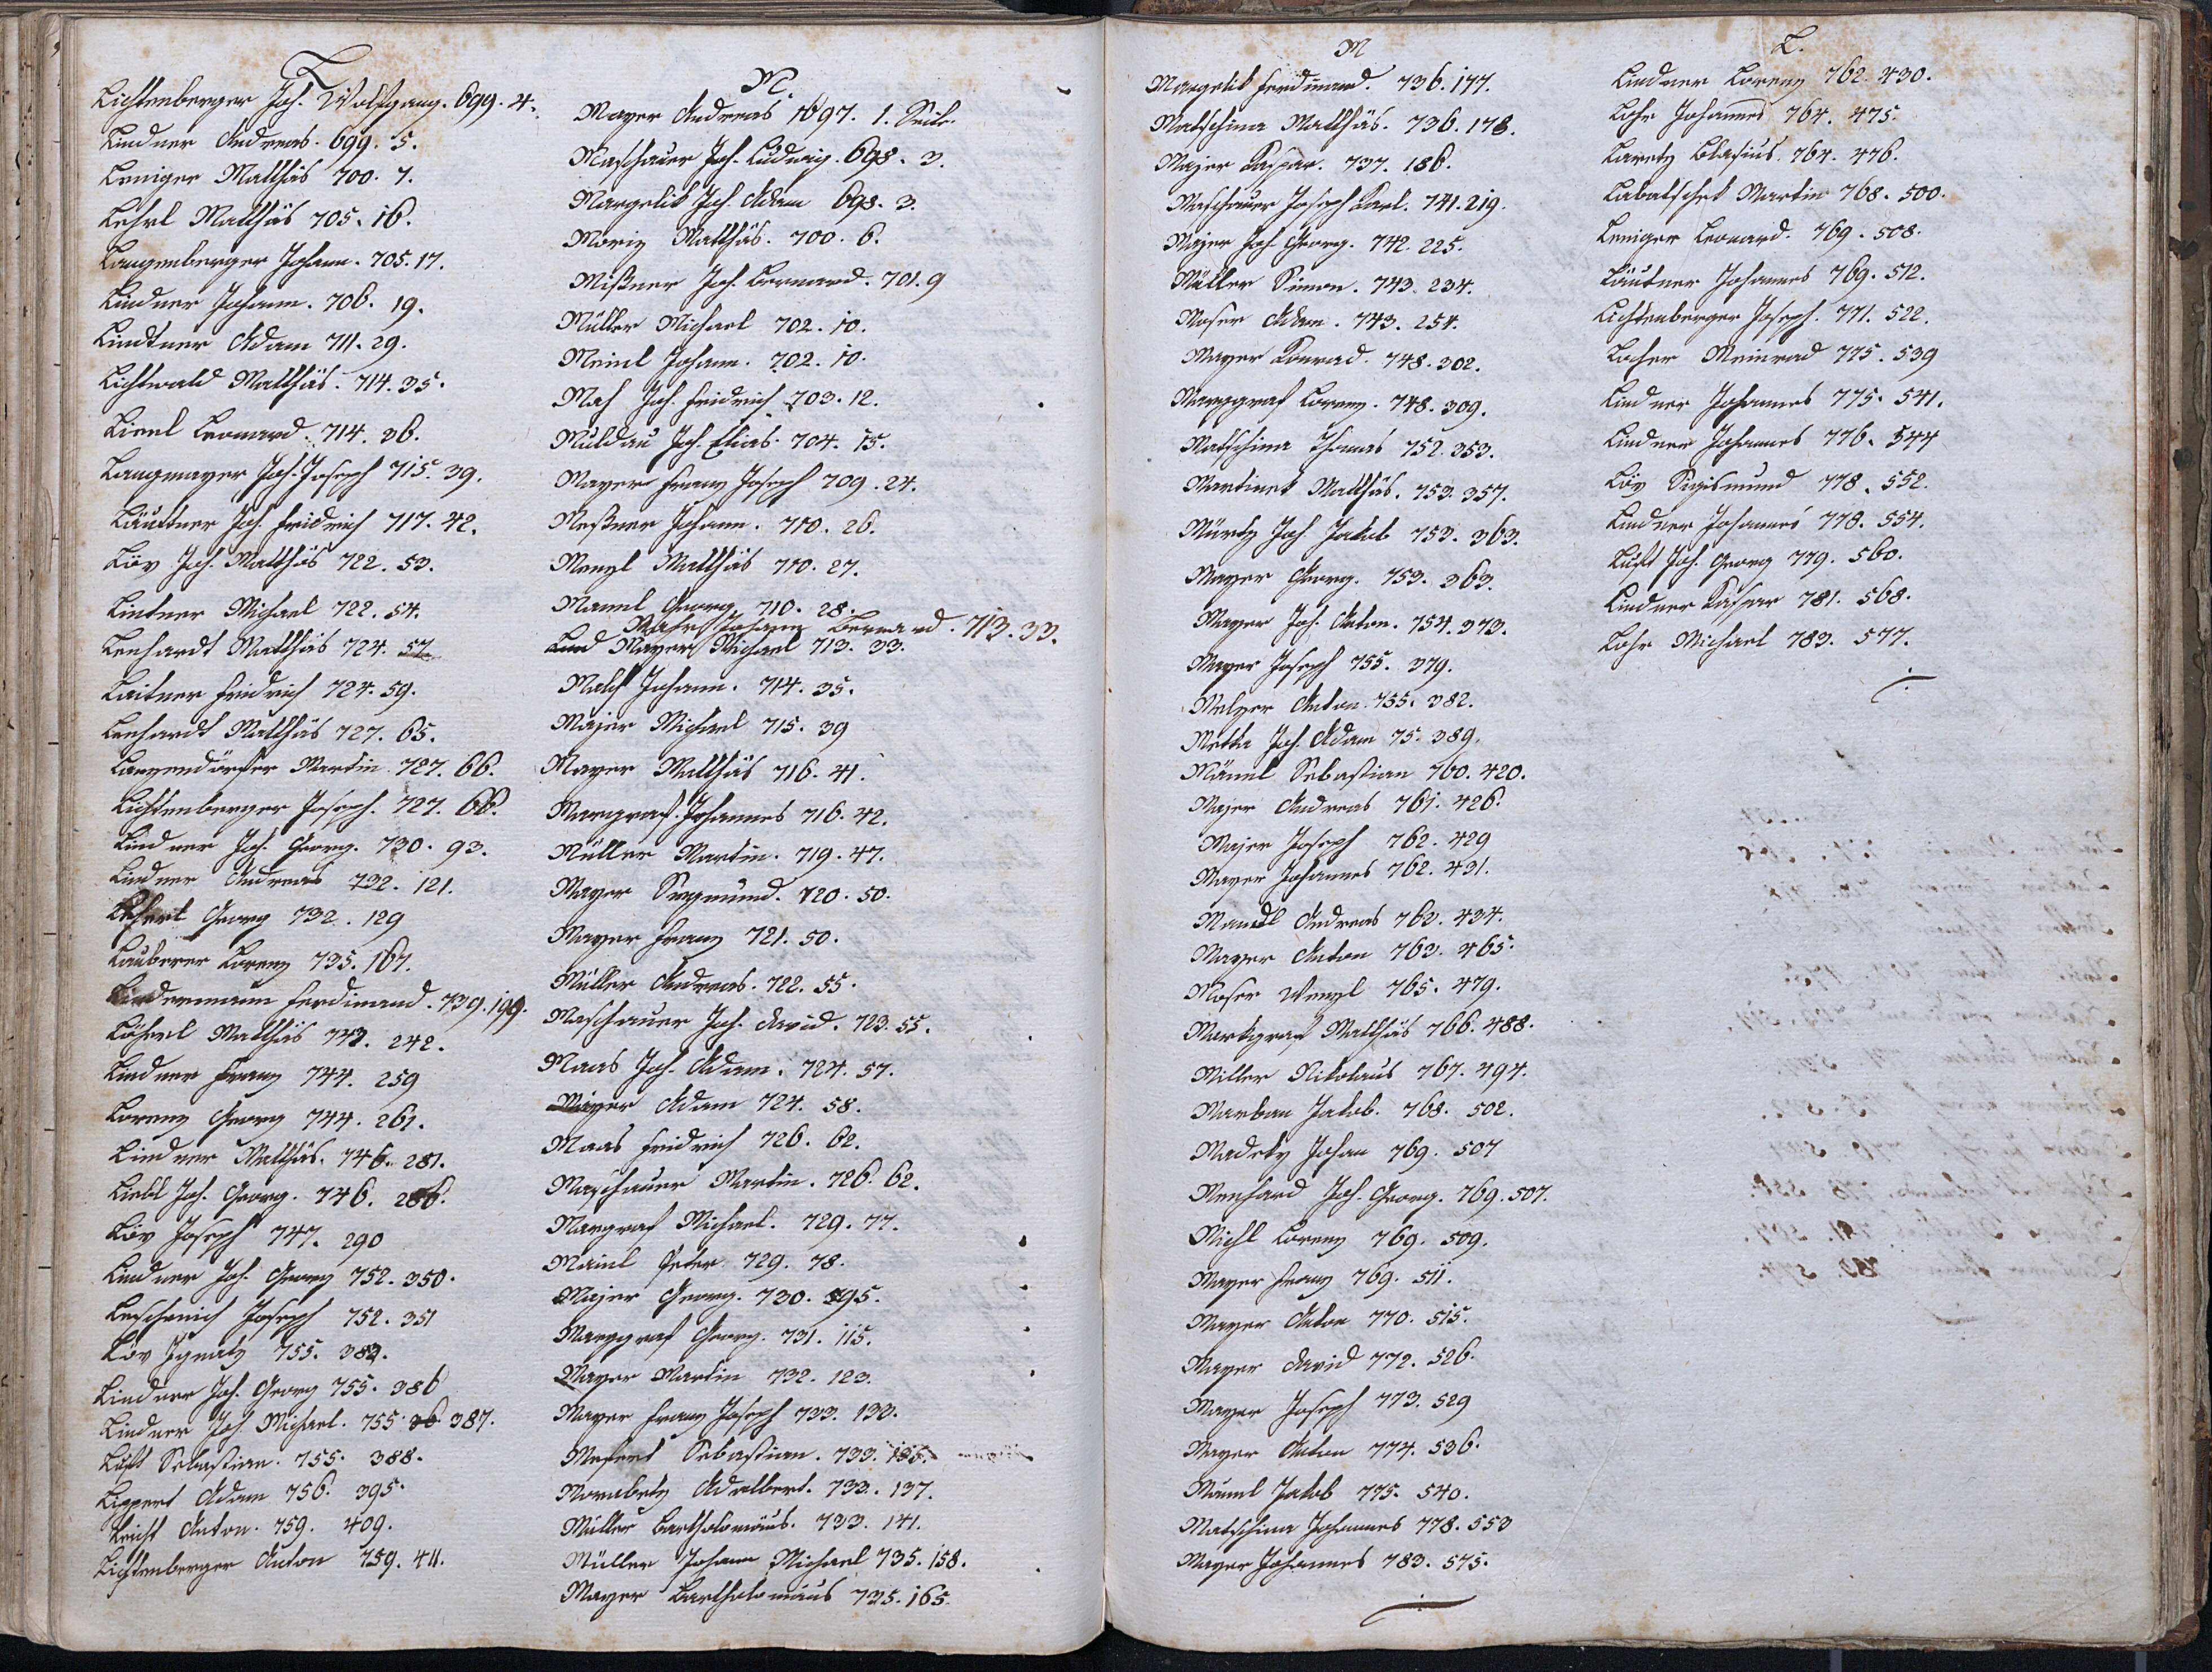 L
Lichtenberger Joh. Wolfgang. 699. 4.
Lindner Andreas. 699. 5.
Leniger Matthäs 700. 7.
Lehrl Matthäs 705. 16.
Langenberger Johann. 705. 17.
Lindner Johann. 706. 19.
Lindtner Adam 711. 29.
Lichtwald Matthäs. 714. 35.
Lienl Leonard. 714. 36.
Langmayer Joh. Joseph 715. 39.
Läutner Joh. Fridrich 717. 42.
Löv Joh. Matthäs 722. 53.
Lintner Michael 722. 54.
Lenhardt Matthäs 724. 57
Laitner Fridrich 724. 59.
Lenhardt Matthäs 727. 65.
Langendörfer Martin. 727. 66.
Lichtenberger Joseph. 727. 66.
Lindner Joh. Georg. 730. 93.
Lindner Andreas 732. 121.
Georg 732. 129
Lauberer Lorenz 735. 167.
Lindermann Ferdinand. 739. 199.
Löherl Matthäs 743. 242.
Lindner Franz 744. 259
Lorenz Georg 744. 261.
Lindner Matthäs. 746. 281.
Liebl Joh. Georg. 746. 286.
Löv Joseph 747. 290
Lindner Joh. Georg 752. 350.
Leschenich Joseph 752. 351
Löv Ignatz 755. 382.
Lindner Joh. Georg 755. 386
Lindner Joh. Michael. 755. 36 387.
Luft Sebastian. 755. 388.
Lippert Adam 756. 395.
Leicht Anton. 759. 409.
Lichtenberger Anton 759. 411.
M.
Mayer Andreas 1697. 1. Seite.
Maschauer Joh. Ludwig. 698. 3.
Margelik Joh. Adam 698. 3.
Moriz Matthäs. 700. 6.
Mißner Joh. Bernard. 701. 9
Müller Michael 702. 10.
Meinl Johann. 702. 10.
Mah Joh. Fridrich 703. 12.
Muldau Joh. Elias. 704. 15.
Mayer Franz Joseph 709. 24.
Meßner Johann. 710. 26.
Menzl Matthäs 710. 27.
Mannl Georg 710. 28.
Mahr Johann Bernard. 713. 33.
Lind Mayer Michael 713. 33.
Malch Johann. 714. 35.
Majer Michael 715. 39
Mayer Matthäs 716. 41.
Margraf Johannes 716. 42.
Müller Martin. 719. 47.
Mayer Siegmund. 720. 50.
Mayer Franz 721. 50.
Müller Andreas. 722. 55.
Maschauer Joh. David. 723. 55.
Maas Joh. Adam. 724. 57.
Mayer Adam 724. 58.
Maas Fridrich 726. 62.
Maschauer Martin. 726. 62.
Margraf Michael. 729. 77.
Mainl Peter 729. 78.
Majer Georg. 730. 95.
Marggraf Georg. 731. 115.
Mayer Martin 732. 123.
Mayer Franz Joseph 733. 132.
Sebastian. 733. 135.
Morabetz Adalbert. 733. 137.
Müller Bartholomäus. 733. 141.
Müller Johann Michael 735. 158.
Mayer Bartholomäus 735. 165.
M
Margelik Ferdinand. 736. 177.
Matschina Matthäs. 736. 178.
Majer Kaspar. 737. 186.
Maschauer Joseph Karl. 741. 219.
Majer Joh Georg. 742. 225.
Müller Simon. 743. 234.
Moser Adam. 743. 254.
Mayer Konrad. 748. 302.
Marggraf Lorenz. 748. 309.
Matschina Thomas 752. 353.
Martinek Matthäs. 753. 357.
Mürtz Joh. Jakob 753. 363.
Mayer Georg. 753. 363.
Mayer Joh. Anton. 754. 373.
Mayer Joseph 755. 379.
Melzer Anton. 755. 382.
Metka Joh. Adam 75. 389.
Männl Sebastian 760. 420.
Majer Andreas 761. 426.
Majer Joseph 762. 429
Mayer Johannes 762. 431.
Mandl Andreas 762. 434.
Mayer Anton 763. 465.
Moser Wenzl 765. 479.
Markgraf Matthäs 766. 488.
Miller Nikolaus 767. 494.
Marban Jakob. 768. 502.
Madetz Johan 769. 507
Menhard Joh. Georg. 769. 507.
Michl Lorenz 769. 509.
Mayer Franz 769. 511.
Mayer Anton 770. 515.
Mayer David 772. 526.
Mayer Joseph 773. 529
Mayer Anton 774. 536.
Mannl Jakob 775. 540.
Matschina Johannes 778. 553
Mayer Johannes 783. 575.
L.
Lindner Lorenz 762. 430.
Lohr Johannes 764. 475.
Laretz Blasius. 764. 476.
Labatschek Martin 768. 500.
Leniger Leonard. 769. 508.
Läutner Johannes 769. 512.
Lichtenberger Joseph. 771. 522.
Locher Meinrad 775. 539
Lindner Johannes 775. 541.
Lindner Johannes 776. 544
Löv Sigismund 778. 552.
Lindner Johannes 778. 554.
Luft Joh. Georg 779. 560.
Lindner Kaspar 781. 568.
Lohr Michael 783. 577.